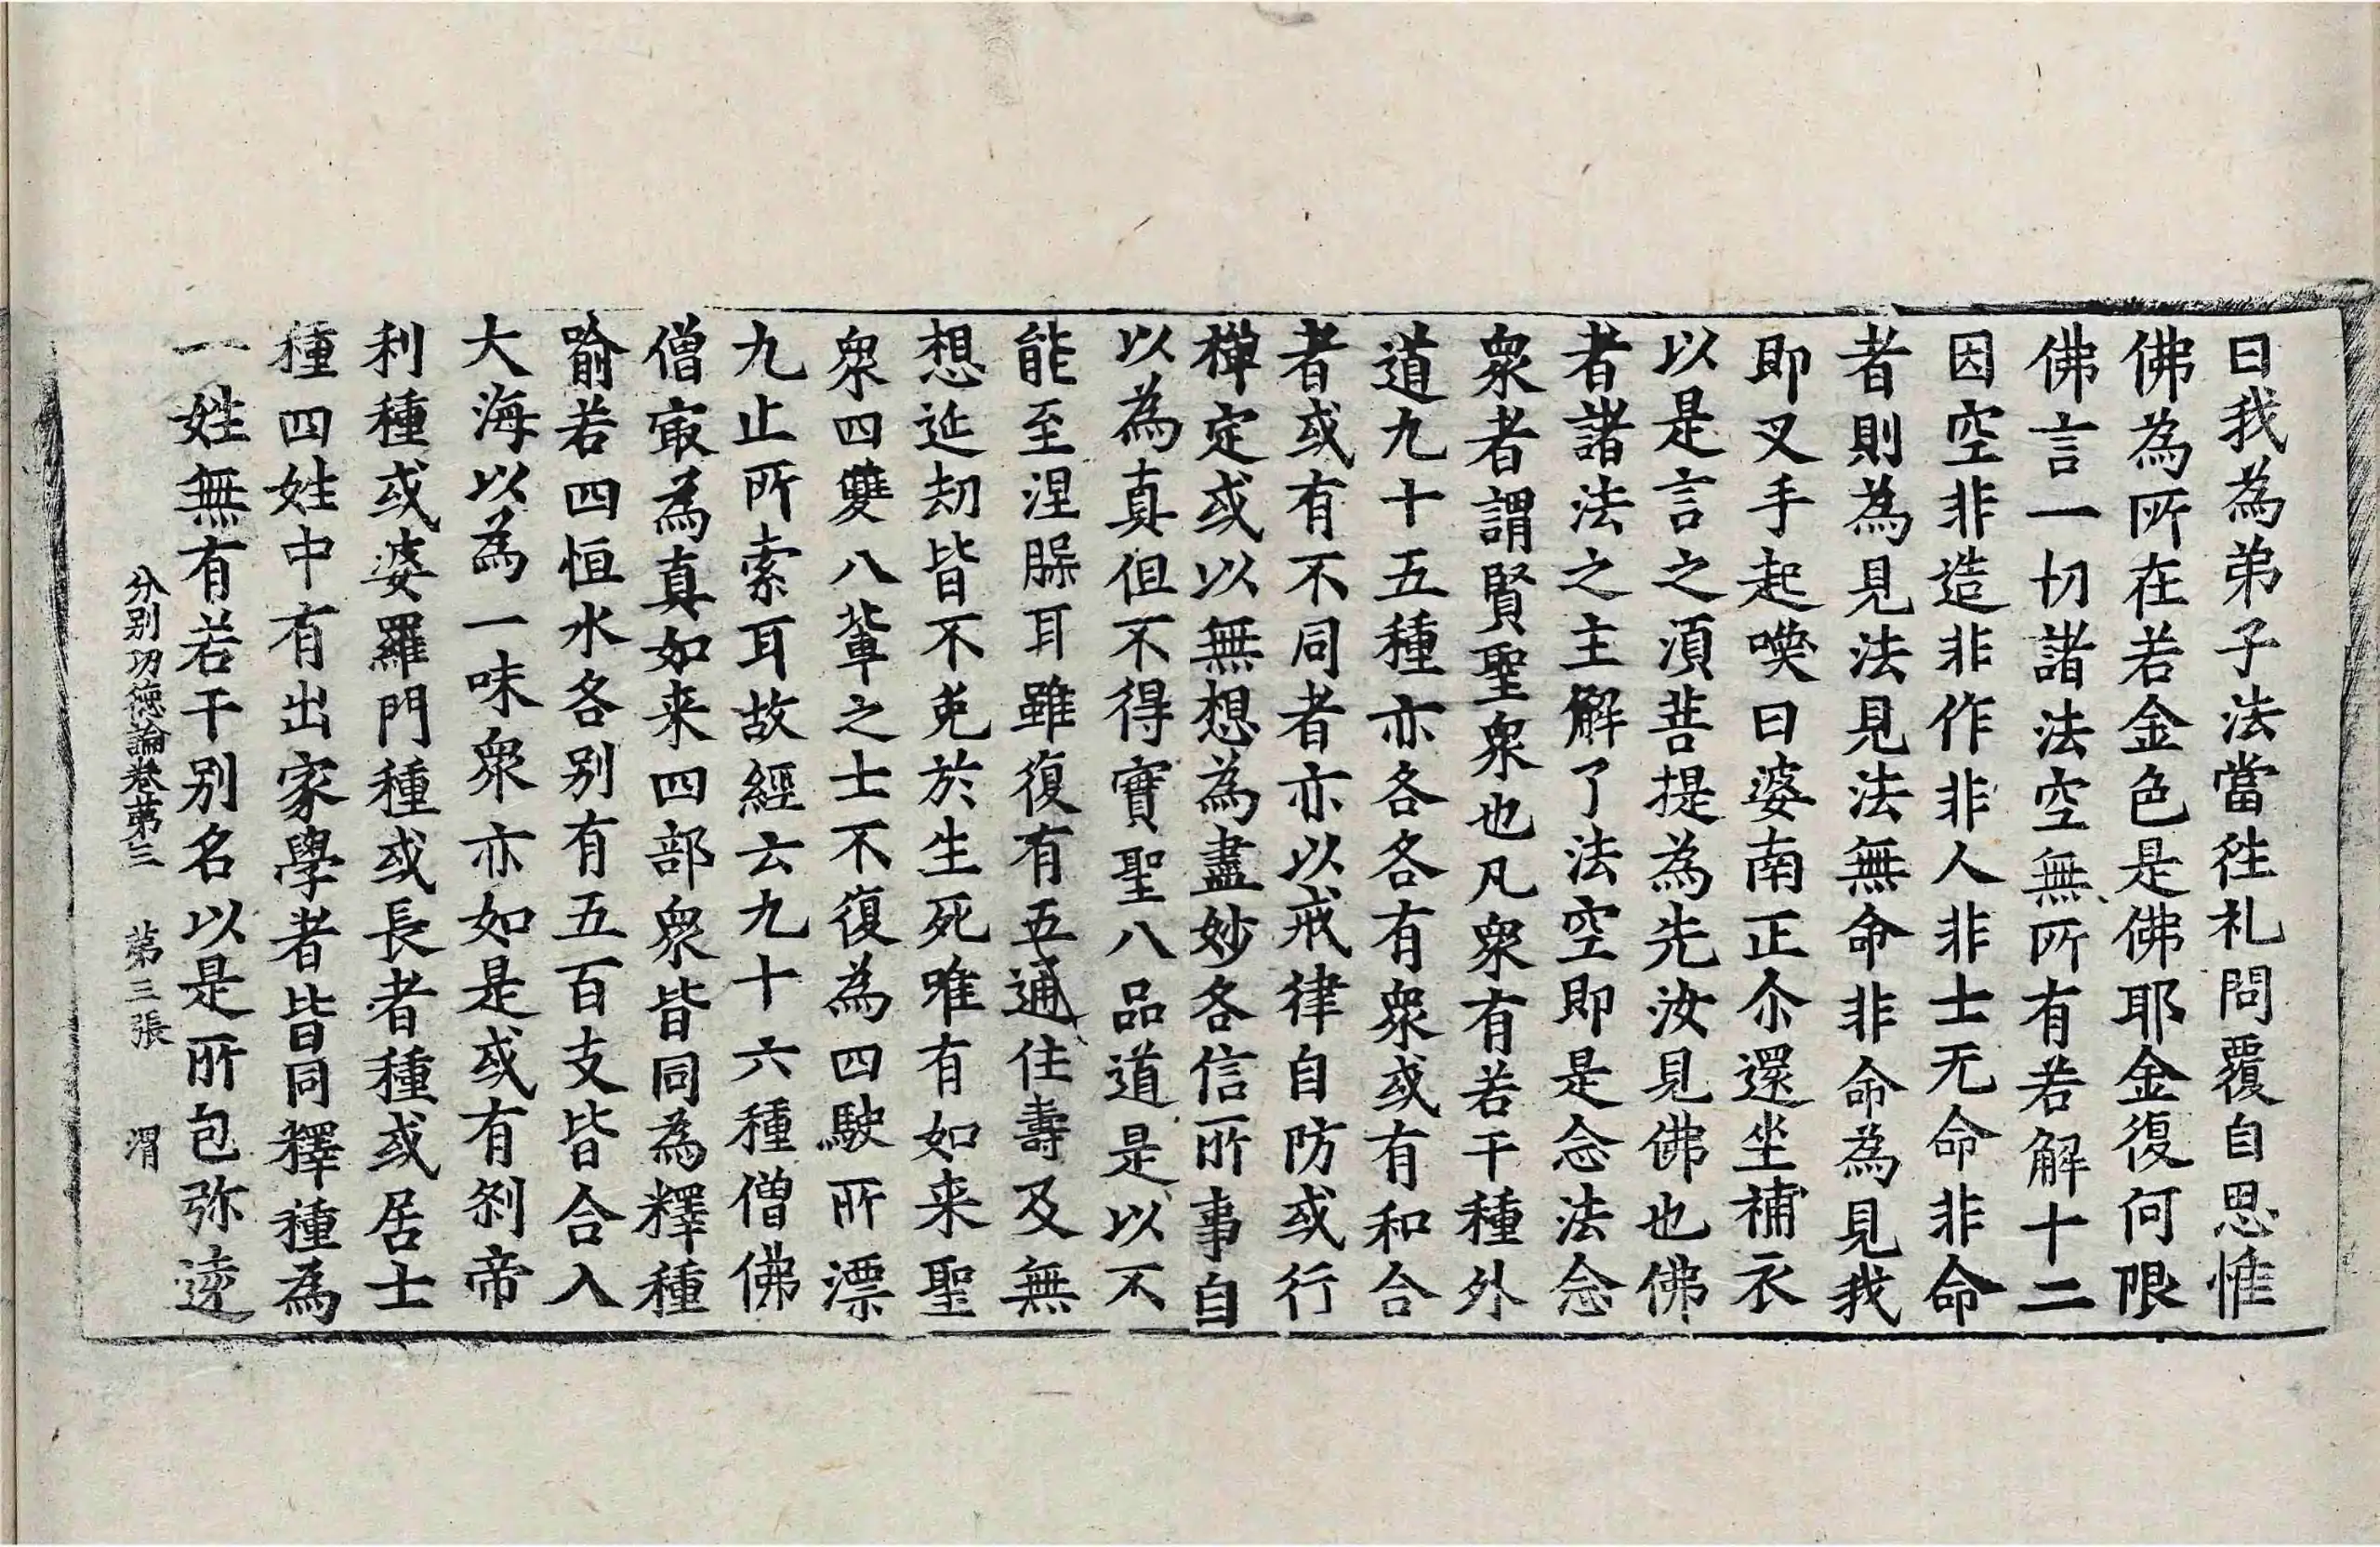 曰我為弟子法當往礼問覆自思惟
佛為所在若金色是佛耶金復何限
佛言一切諸法空無所有若解十二
因空非造非作非人非士无命非命
者則為見法見法無命非命為見我
即叉手起嘆曰婆南正尒還坐補衣
以是言之湏菩提為先汝見佛也佛
者諸法之主解了法空即是念法念
衆者謂賢聖衆也凡衆有若干種外
道九十五種亦各各有衆或有和合
者或有不同者亦以戒律自防或行
禅定或以無想為盡妙各信所事自
以為真但不得實聖八品道是以不
能至涅腂耳雖復有五通住壽及無
想延劫皆不免於生死唯有如来聖
衆四雙八軰之士不復為四駛所漂
九止所索耳故經云九十六種僧佛
僧㝡為真如来四部衆皆同為釋種
喻若四恒水各別有五百支皆合入
大海以為一味衆亦如是或有剎帝
利種或婆羅門種或長者種或居士
種四姓中有出家學者皆同釋種為
一姓無有若干別名以是所包弥逵
分別功德論卷第三 第三張 渭